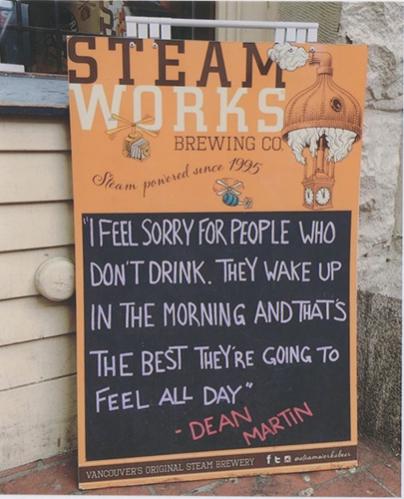 STEAM
WORKS
BREWING CO.
Steam powered since 1995
"I FEEL SORRY FOR PEOPLE WHO
DON'T DRINK. THEY WAKE UP
IN THE MORNING AND THAT'S
THE BEST THEY'RE GOING TO
FEEL ALL DAY"
- DEAN
MARTIN
VANCOUVER'S ORIGINAL STEAM BREWERY @steamworksbeer